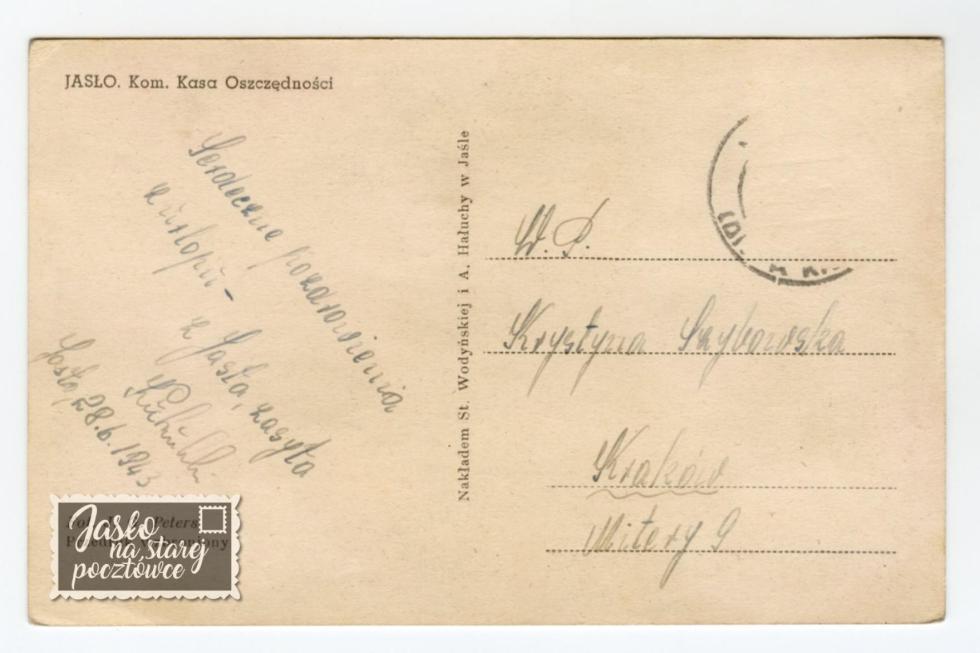 JASŁO. Kom. Kasa Oszczędności
Serdeczne pozdrowienia
z urlopu -
z Jasła, zasyła
Jasło, 28.6.1943
Nakładem St. Wodyńskiej i A. Hałuchy w Jaśle
W. P.
Krystyna Szybowska
Kraków
9
Jasło
na starej
pocztówce